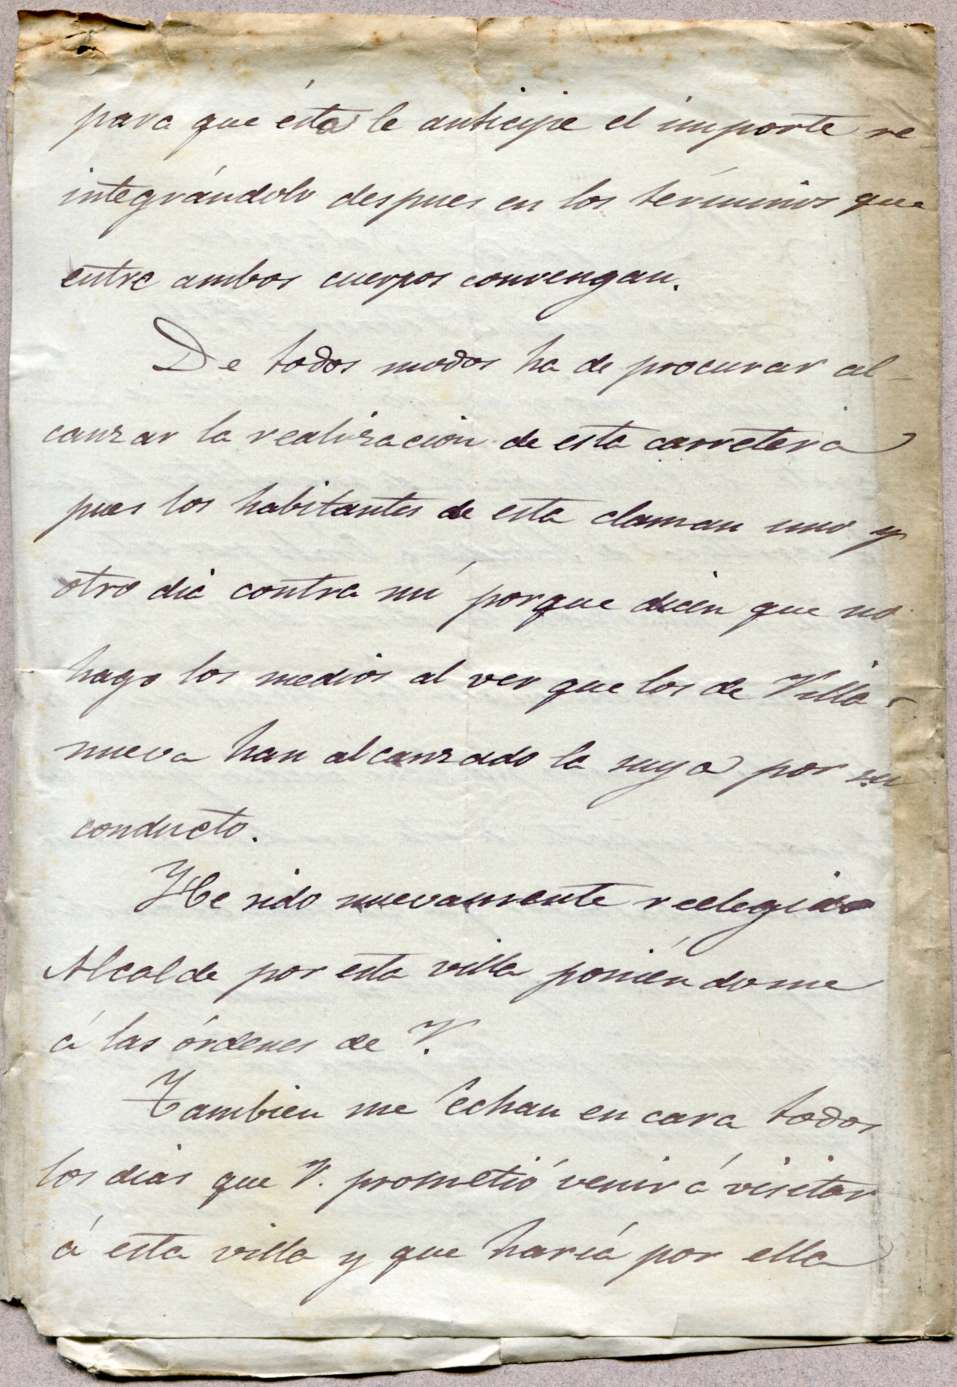 para que ésta le anticipe el importe re
integrándolo despues en los términos que
entre ambos cuerpos convengan.
De todos modos ha de procurar al-
canzar la realizacion de esta carretera
pues los habitantes de esta claman uno y
otro dia contra mí porque dicen que no
hago los medios al ver que los de Villa-
nueva han alcanzado la suya por su
conducto.
He sido nuevamente reelegido
Alcalde por esta villa poniéndome
á las órdenes de V.
Tambien me echan en cara todos
los dias que V. prometió venir á visitar
á esta villa y que haría por ella